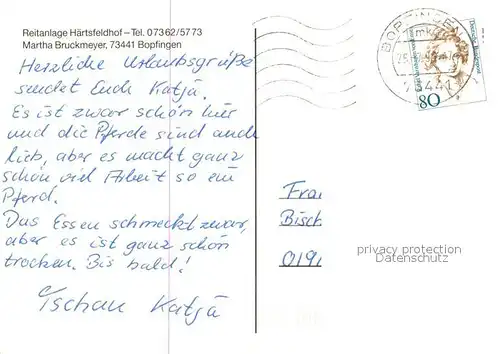 Reitanlage Härtsfeldhof – Tel. 07362/5773
Martha Bruckmeyer, 73441 Bopfingen
Herzliche Urlaubsgrüße
sendet Euch Katja.
Es ist zwar schön hier
und die Pferde sind auch
lieb, aber es macht ganz
schön viel Arbeit so ein
Pferd.
Das Essen schmeckt zwar,
aber es ist ganz schön
trocken. Bis bald!
Tschau Katja
BOPFINGEN
73441
Deutsche Bundespost
80
Bisch
019
privacy protection
Datenschutz